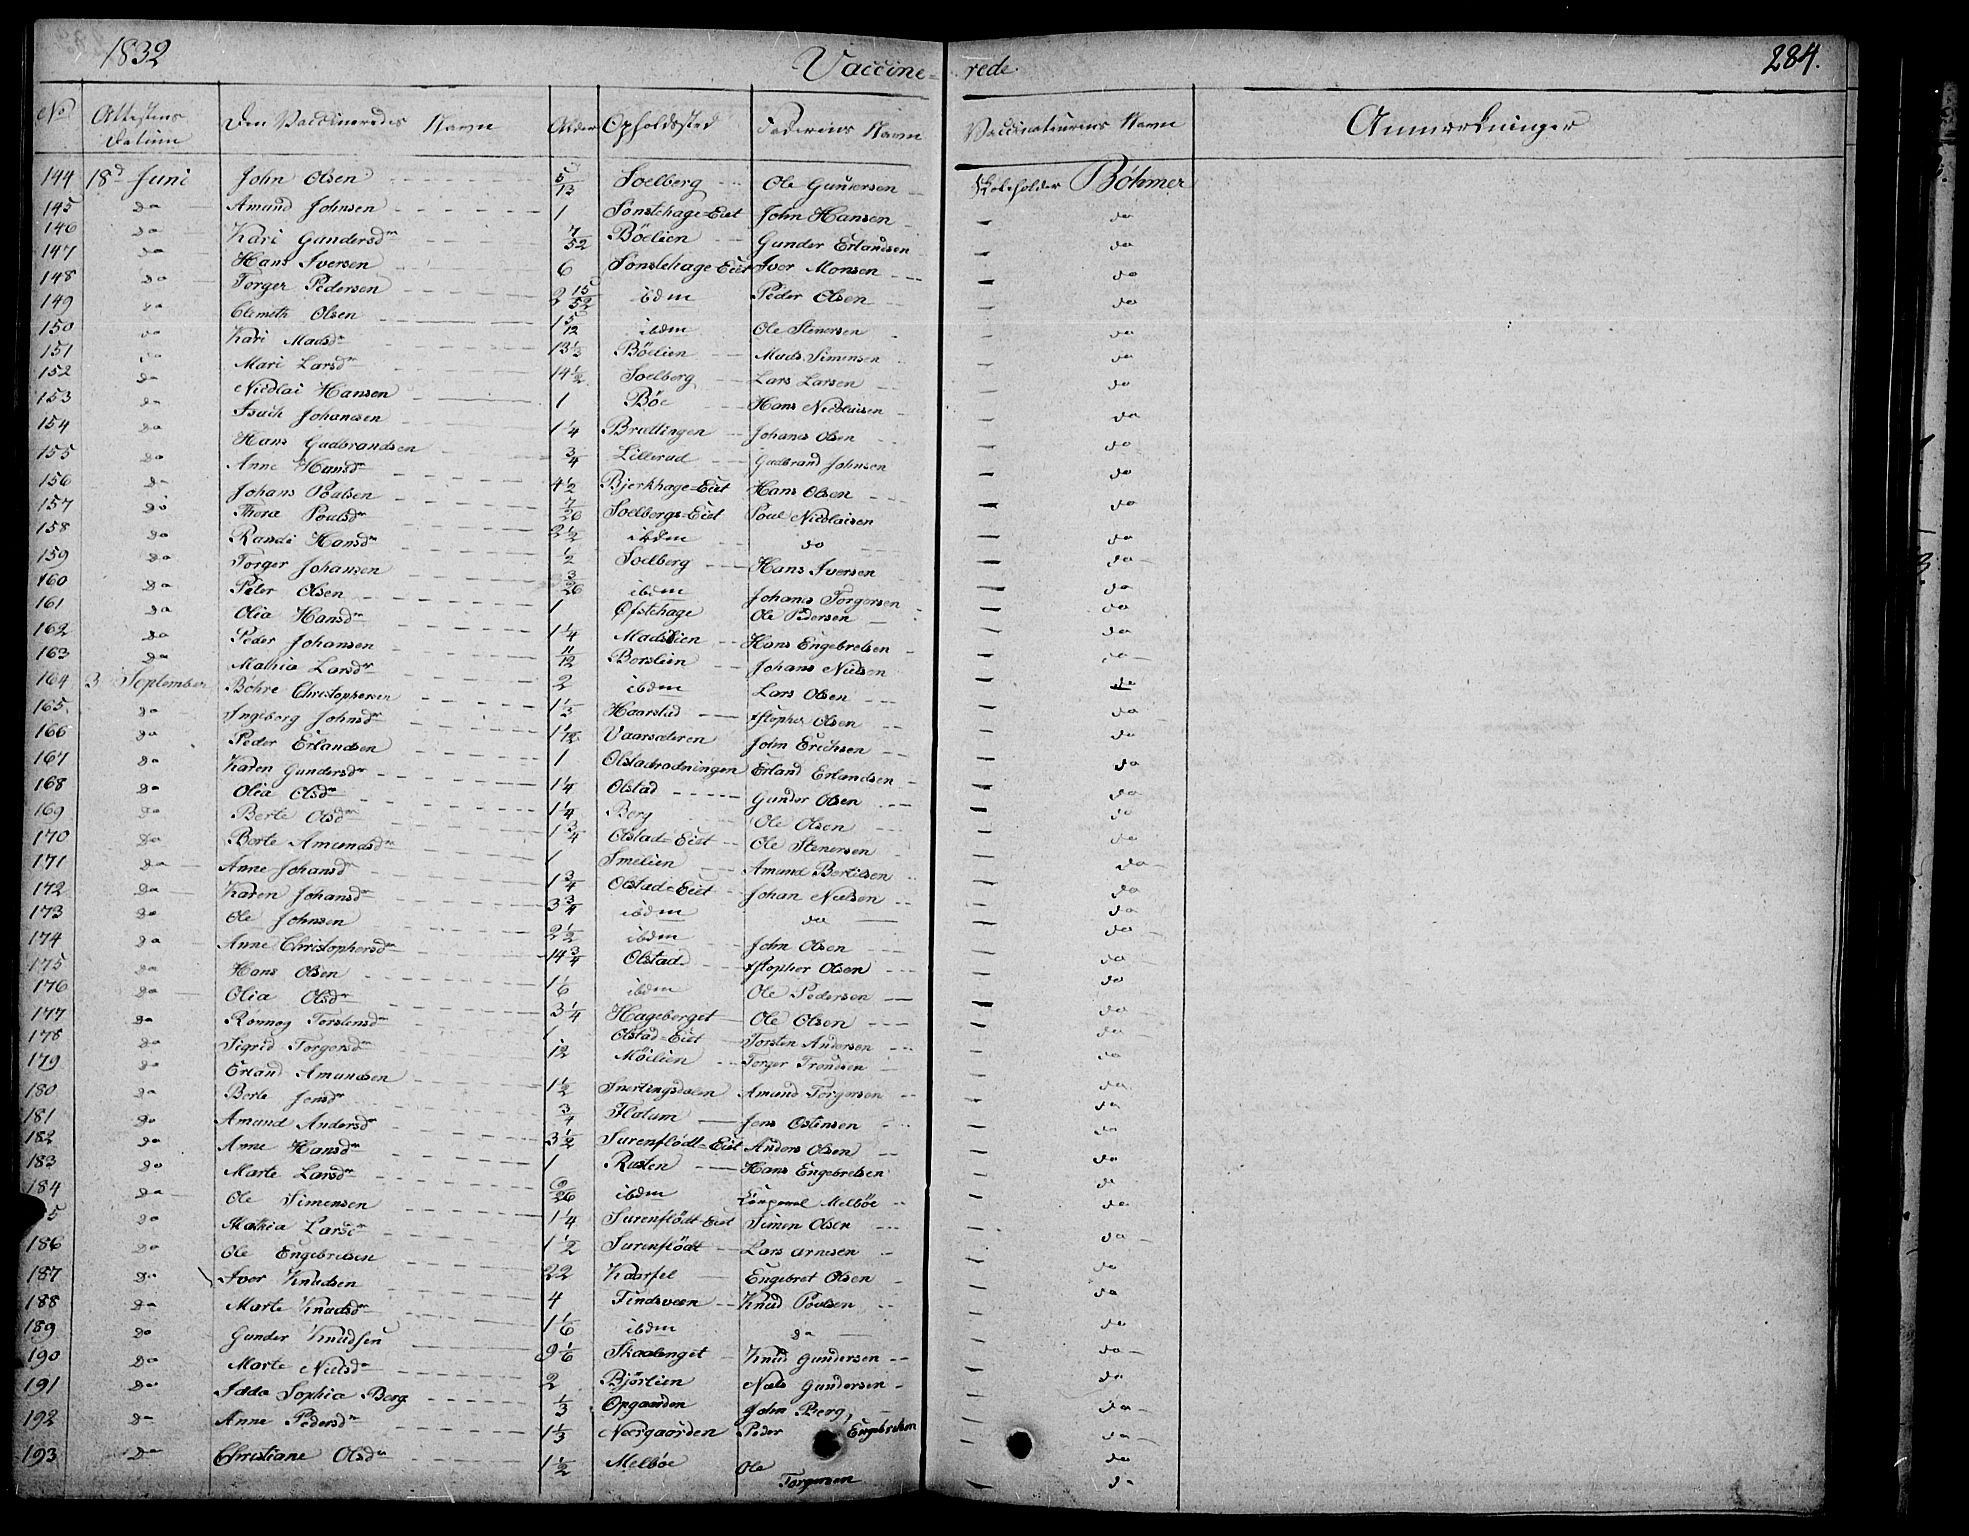 1832 Vaccine= rede. 284.
No Attestens Datum Den Vaccineredes Navn Alder Opholdssted Faderens Navn Vaccinateurens Navn Anmærkninger
144 18d Juni John Olsen 5/13 Soelberg Ole Gundersen Böhmer
145 do Amund Johnsen 1 Sonstehage=Eiet John Hansen — do
146 do Kari Gundersdr 7/52 Böelien Gunder Erlandsen — do
147 do Hans Iversen 6 Sonstehage=Eiet Iver Monsen — do
148 do Torger Pedersen 2 15/52 ibdm Peder Olsen — do
149 do Clemeth Olsen 1 5/12 ibdm Ole Stenersen — do
150 do Kari Madsdr 13 1/3 Böelien Mads Simensen — do
151 do Mari Larsdr 14 1/2 Soelberg Lars Larsen — do
152 do Nicolai Hansen 1 Böe Hans Nicolaisen — do
153 do Isach Johansen 1 1/4 Brættingen Johanes Olsen — do
154 do Hans Gudbrandsen 3/4 Lillerud Gudbrand Johnsen — do
155 do Anne Hansdr 4 1/2 Bjerkhage=Eiet Hans Olsen — do
156 do Johans Poulsen 7/26 Soelbergs=Eiet Poul Nicolaisen — do
157 do Thora Poulsdr 2 1/2 ibdm do — do
158 do Randi Hansdr 1/2 Soelberg Hans Iversen — do
159 do Torger Johansen 3/26 ibdm Johanes Torgersen — do
160 do Peter Olsen 1 Öfstehage Ole Pedersen — do
161 do Olia Hansdr 1 1/4 Madslien Hans Engebretsen — do
162 do Peder Johansen 11/12 Borslien Johans Nielsen — do
163 do Mathia Larsdr 2 ibdm Lars Olsen — do
164 3 September Böhre Christophersen 1 1/2 Haarstad Xstopher Olsen — do
165 do Ingeborg Johnsdr Vaarsæteren John Erichsen — do
166 do Peder Erlandsen 1 Olstadrudningen Erland Erlandsen — do
167 do Karen Gundersdr 1 1/4 Olstad Gunder Olsen — do
168 do Olia Olsdr 1 1/4 Berg Ole Olsen — do
169 do Berte Olsdr 1 3/4 Olstad=Eiet Ole Stenersen — do
170 do Berte Amundsdr 1 Smelien Amund Bertilsen — do
171 do Anne Johansdr 1 3/4 Olstad=Eiet Johan Nielsen — do
172 do Karen Johansdr 3 3/4 ibdm do — do
173 do Ole Johnsen 2 1/2 ibdm John Olsen — do
174 do Anne Christophersdr 14 3/4 Olstad Xstopher Olsen — do
175 do Hans Olsen 1 1/6 ibdm Ole Pedersen — do
176 do Olia Olsdr 3 1/4 Hageberget Ole Olsen — do
177 do Rönnog Torstensdr 1 Olstad=Eiet Torsten Andersen — do
178 do Sigrid Torgersdr 12 Möilien Torger Trondsen — do
179 do Erland Amundsen 1 1/2 Snertingsdalen Amund Torgersen — do
180 do Berte Jensdr 3/4 Flatum Jens Ostensen — do
181 do Amund Andersdr 3 1/2 Surenflödt=Eiet Anders Olsen — do
182 do Anne Hansdr 1 Rusten Hans Engebretsen — do
183 do Marte Larsdr ibdm Melböe — do
184 do Ole Simensen 1 1/4 Surenflödt=Eiet Simen Olsen — do
5 do Mathia Larsdr 1 1/2 Surenflödt Lars Arnesen — do
186 do Ole Engebretsen 22 Kaarfel Engebret Olsen — do
187 do Iver Knudsen 4 Tindsveen Knud Poulsen — do
188 do Marte Knudsdr 1 1/6 ibdm do — do
189 do Gunder Knudsen 9 1/6 Skaalenget Knud Gundersen — do
190 do Marte Nielsdr 2 Björlien Niels Gundersen — do
191 do Idda Sophia Berg 1/3 Opgaarden John Berg — do
192 do Anne Pedersdr 1 1/3 Neergaarden Peder Engebretsen — do
193 do Christiane Olsdr 1 1/2 Melböe Ole Torgersen — do